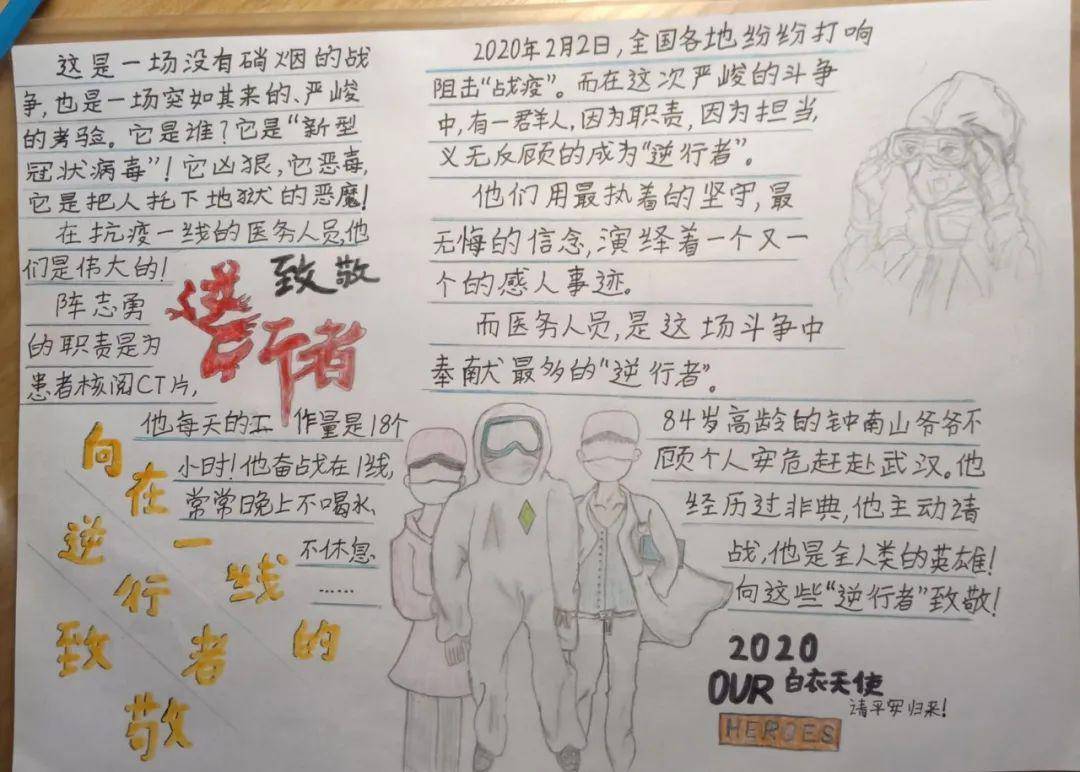 这是一场没有硝烟的战
争,也是一场突如其来的、严峻
的考验。它是谁?它是“新型
冠状病毒”!它凶狠,它恶毒,
它是把人托下地狱的恶魔!
在抗疫一线的医务人员,他
们是伟大的!
陈志勇
的职责是为
患者核阅CT片,
他每天的工作量是18个
小时!他奋战在1线,
常常晚上不喝水、
不休息
……
致敬
逆行者
向在一线的
逆行者
致敬
2020年2月2日,全国各地纷纷打响
阻击“战疫”。而在这次严峻的斗争
中,有一群人,因为职责,因为担当,
义无反顾的成为“逆行者”。
他们用最执着的坚守,最
无悔的信念,演绎着一个又一
个的感人事迹。
而医务人员,是这场斗争中
奉献最多的“逆行者”。
84岁高龄的钟南山爷爷不
顾个人安危赶赴武汉。他
经历过非典,他主动请
战,他是全人类的英雄!
向这些“逆行者”致敬!
2020
OUR 白衣天使
请平安归来!
HEROES